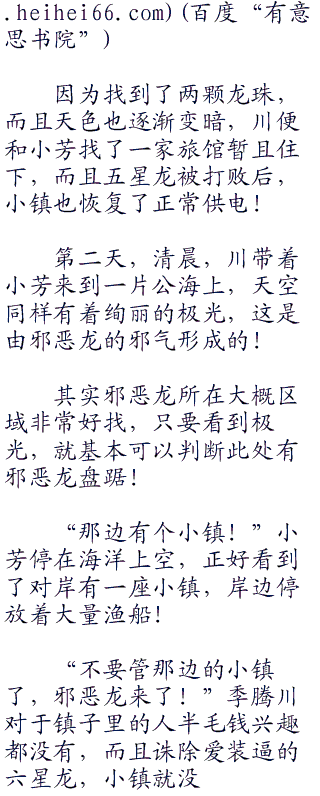 .heihei66.com)(百度“有意
思书院”)
因为找到了两颗龙珠，
而且天色也逐渐变暗，川便
和小芳找了一家旅馆暂且住
下，而且五星龙被打败后，
小镇也恢复了正常供电！
第二天，清晨，川带着
小芳来到一片公海上，天空
同样有着绚丽的极光，这是
由邪恶龙的邪气形成的！
其实邪恶龙所在大概区
域非常好找，只要看到极
光，就基本可以判断此处有
邪恶龙盘踞！
“那边有个小镇！”小
芳停在海洋上空，正好看到
了对岸有一座小镇，岸边停
放着大量渔船！
“不要管那边的小镇
了，邪恶龙来了！”季腾川
对于镇子里的人半毛钱兴趣
都没有，而且诛除爱装逼的
六星龙，小镇就没